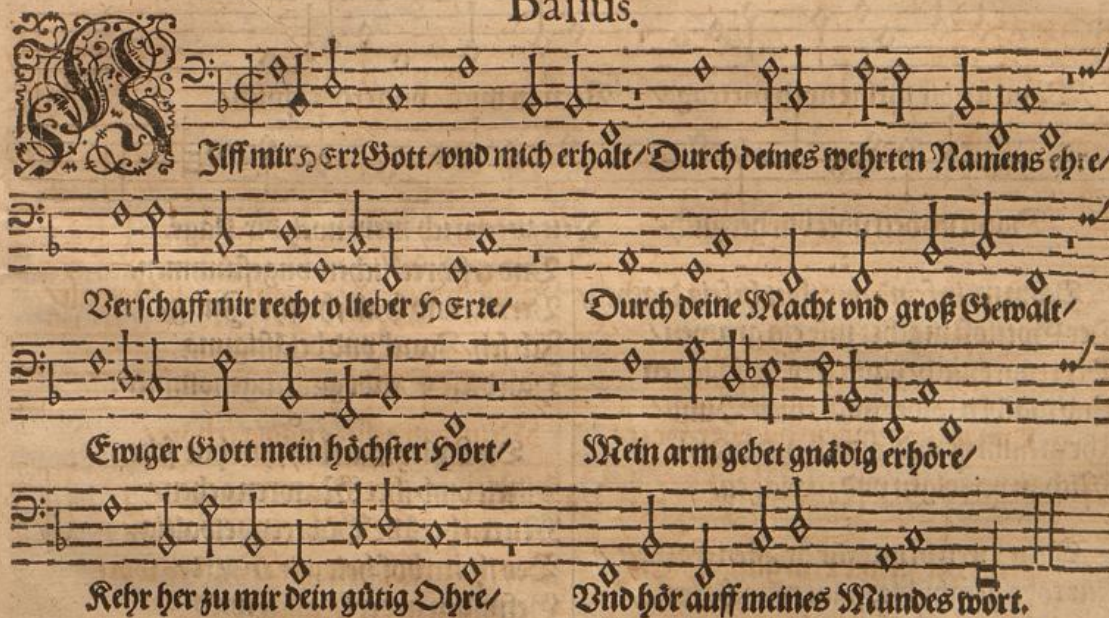 Bassus.
HIlff mir HErr Gott/ vnd mich erhalt/ Durch deines wehrten Namens ehre/
Verschaff mir recht o lieber HErre/ Durch deine Macht vnd groß Gewalt/
Ewiger Gott mein höchster Hort/ Mein arm gebet gnädig erhöre/
Kehr her zu mir dein gütig Ohre/ Vnd hör auff meines Mundes wort.